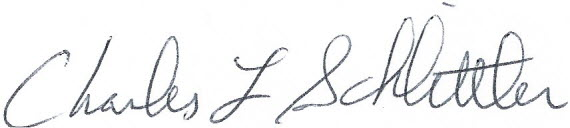 Charles L Schlittler